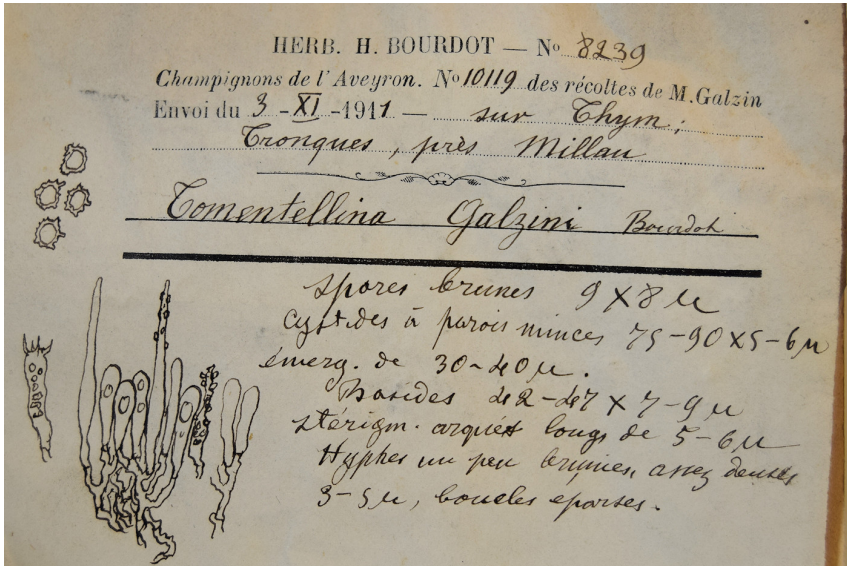 HERB. H. BOURDOT — No 8239
Champignons de l'Aveyron. No 10119 des récoltes de M. Galzin
Envoi du 3 - XI - 1911 — sur Thym;
Tronques, près Millau
Tomentellina Galzini Bourdot
Spores brunes 9 X 8 µ
Cystides à parois minces 75-90 X 5-6 µ
émerg. de 30-40 µ.
Basides 42-47 X 7-9 µ
stérigm. arqués longs de 5-6 µ
Hyphes un peu brunies, assez denses
3-5 µ, boucles eparses.